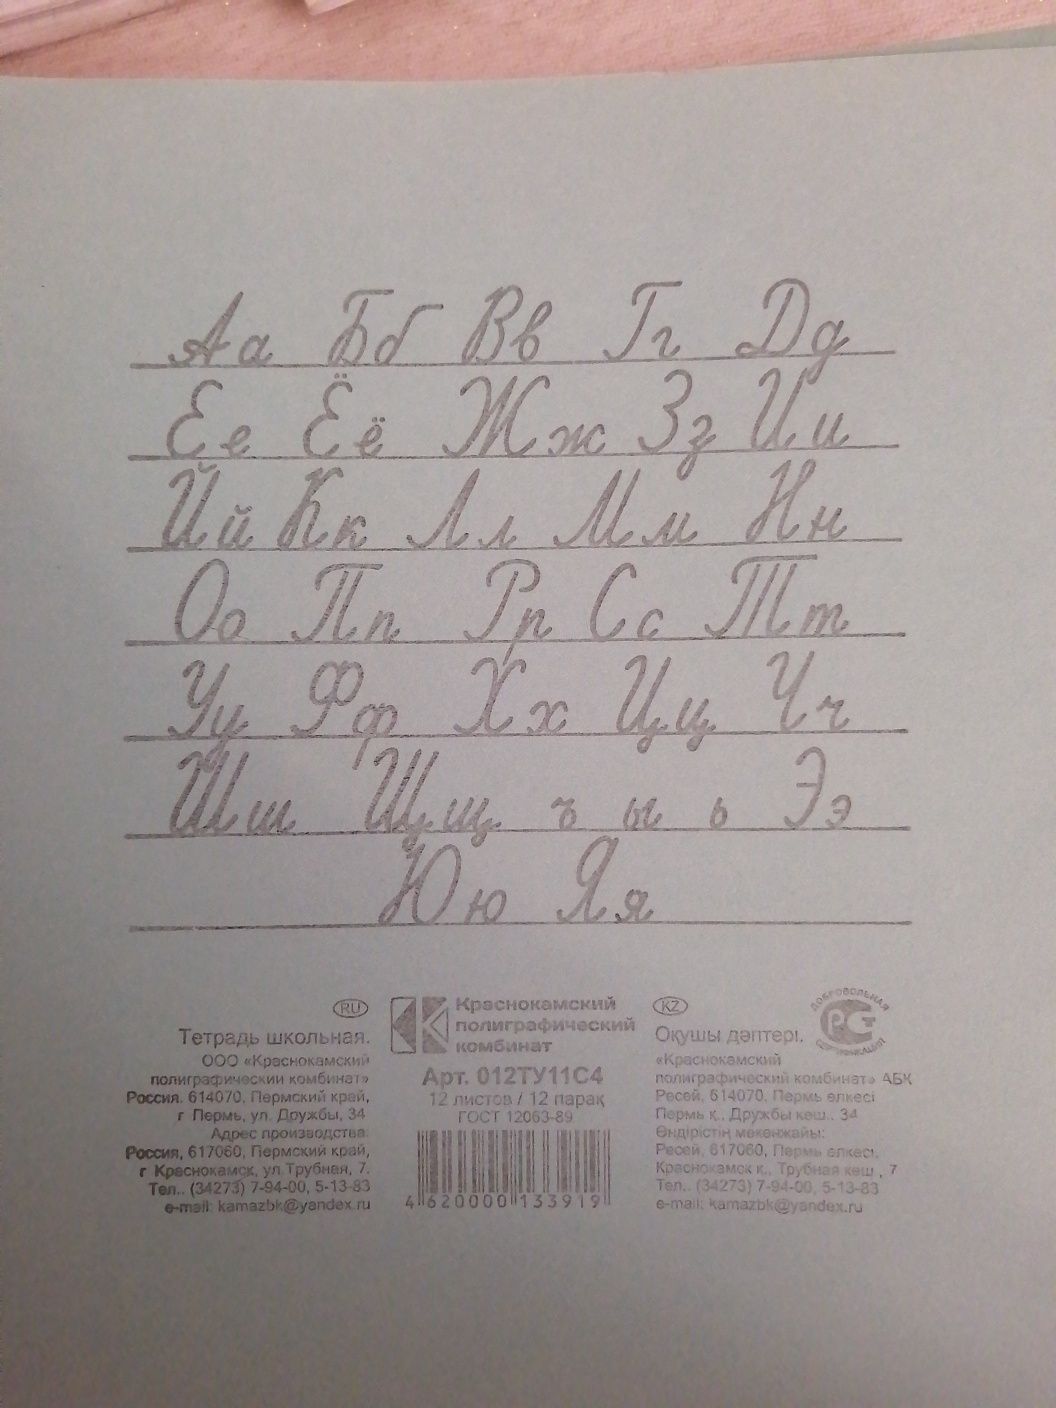 Аа Бб Вв Гг Дд
Ее Ёё Жж Зз Ии
Йй Кк Лл Мм Нн
Оо Пп Рр Сс Тт
Уу Фф Хх Цц Чч
Шш Щщ ъ ы ь Ээ
Юю Яя
RU
Тетрадь школьная.
ООО «Краснокамский
полиграфический комбинат»
Россия, 614070, Пермский край,
г. Пермь, ул. Дружбы, 34
Адрес производства:
Россия, 617060, Пермский край,
г. Краснокамск, ул. Трубная, 7.
Тел.. (34273) 7-94-00, 5-13-83
e-mail: kamazbk@yandex.ru
Краснокамский
полиграфический
комбинат
Арт. 012ТУ11С4
12 листов / 12 парақ
ГОСТ 12063-89
4 620000 133919
KZ
Оқушы дәптері.
«Краснокамский
полиграфический комбинат» АБҚ
Ресей, 614070, Пермь өлкесі
Пермь қ., Дружбы көш., 34
Өндірістің мекенжайы:
Ресей, 617060, Пермь өлкесі,
Краснокамск қ., Трубная көш., 7
Тел.. (34273) 7-94-00, 5-13-83
e-mail: kamazbk@yandex.ru
ДОБРОВОЛЬНАЯ
РСТ
СЕРТИФИКАЦИЯ